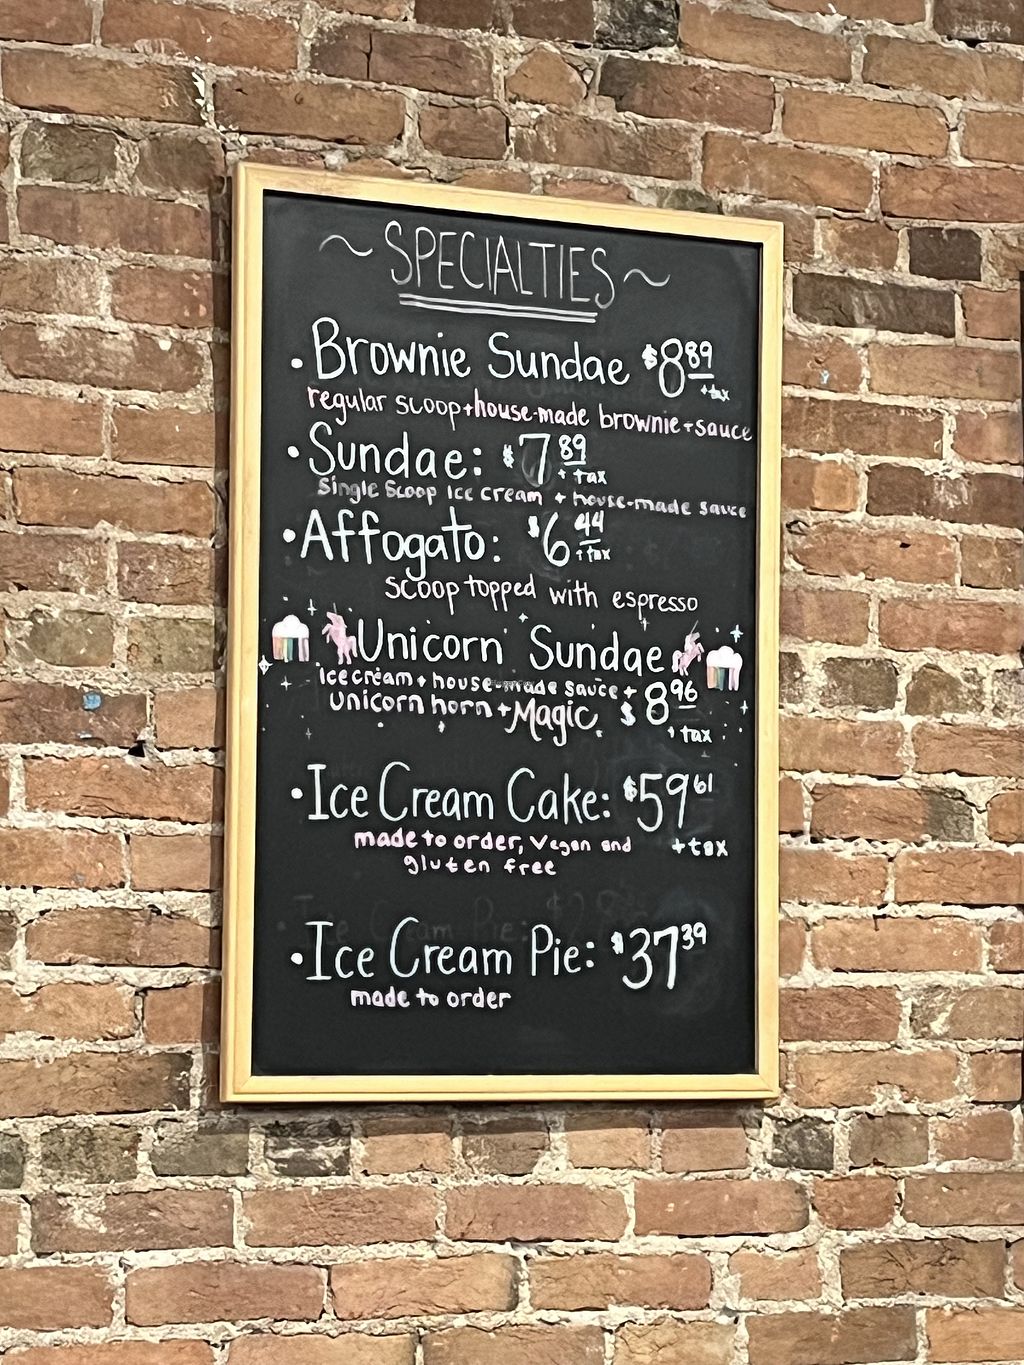 ~ SPECIALTIES ~
• Brownie Sundae $8.89 + tax
regular scoop + house-made brownie + sauce
• Sundae: $7.89 + tax
Single Scoop Ice cream + house-made sauce
• Affogato: $6.44 + tax
scoop topped with espresso
Unicorn Sundae
Ice cream + house-made sauce +
unicorn horn + Magic $8.96
+ tax
• Ice Cream Cake: $59.61
made to order, Vegan and + tax
gluten free
• Ice Cream Pie: $37.39
made to order